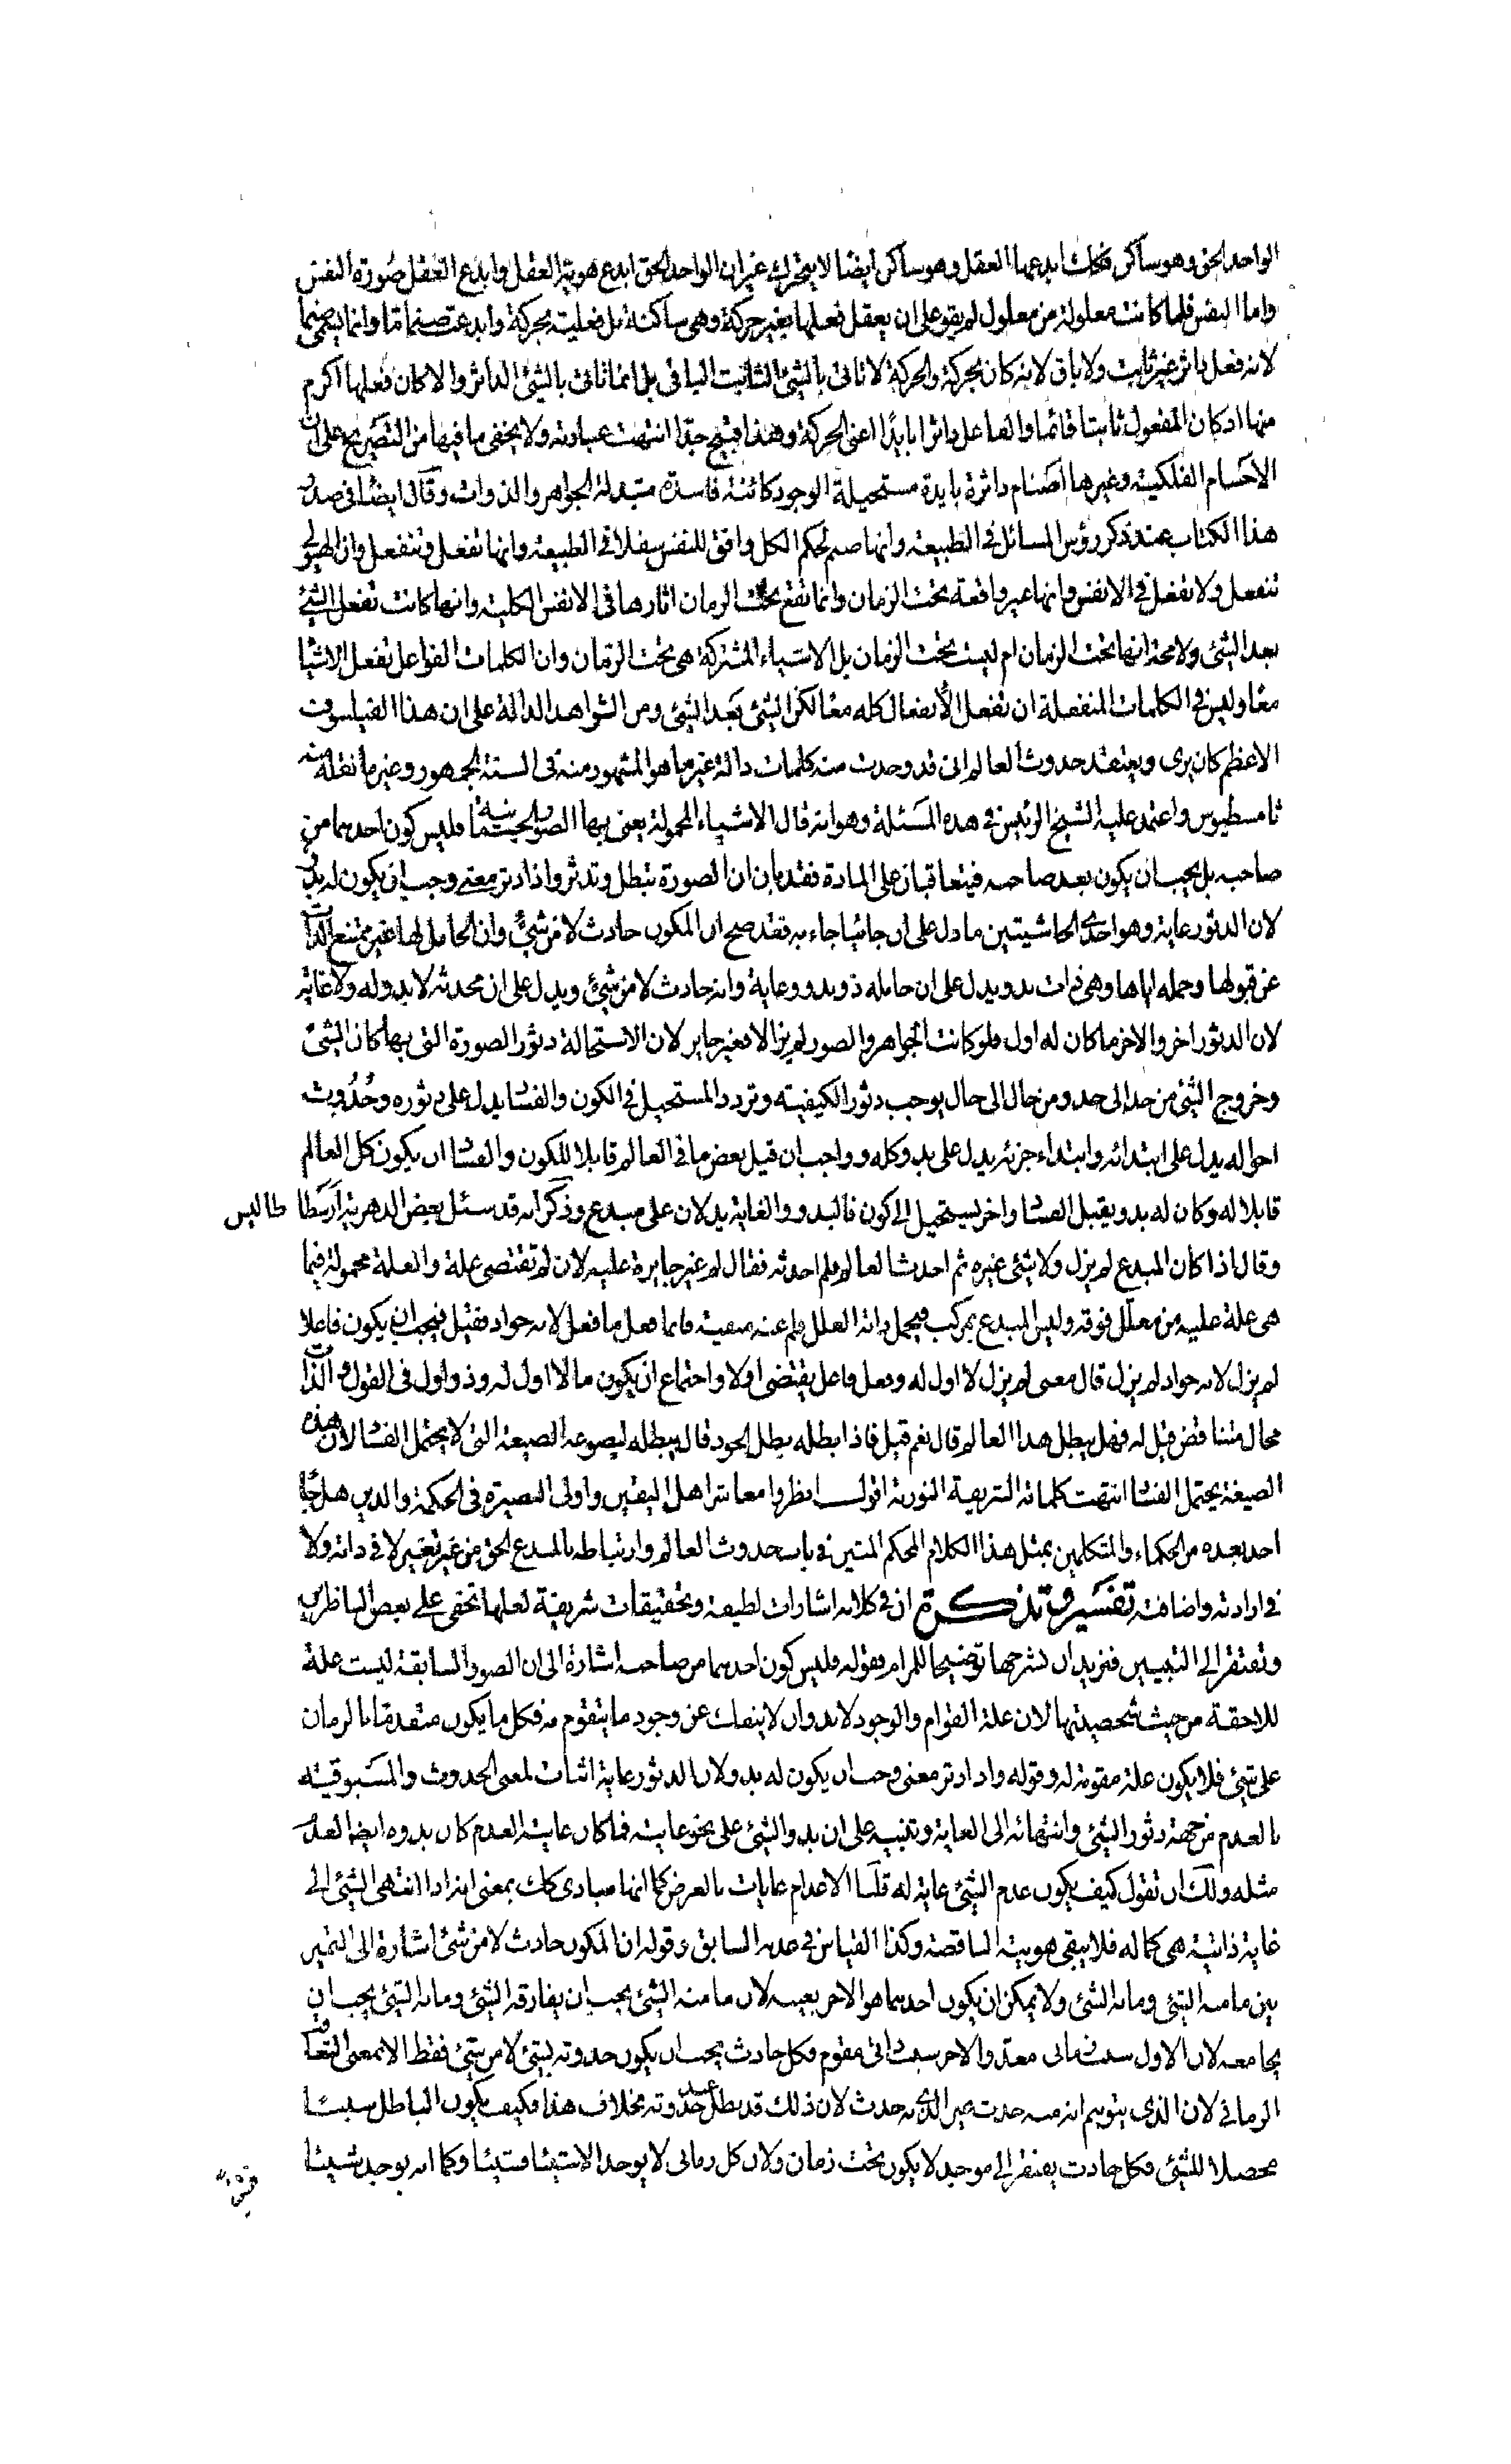 الواحد الحق وهو ساكن فكذلك ابدعها العقل وهو ساكن ايضا لا يتحرك غير ان الواحد الحق ابدع هوية العقل وابدع العقل صورة النفس
واما النفس فلما كانت معلولة من معلول لم يقو على ان يعقل فعلها بغير حركة وهى ساكنة بل فعليته بحركة وابدعت صنما ما وانما يسمى صنما
لانه فعل داثر غير ثابت ولا باق لانه كان بحركة والحركة لا تاتى بالشئ الثابت الباقى بل انما تاتى بالشئ الداثر والا كان فعلها اكرم
منها اذ كان المفعول ثابتا قائما والفاعل داثرا بايدًا اعنى الحركة وهذا قبيح جدّا انتهت عبارته ولا يخفى ما فيها من التصريح على ان
الاجسام الفلكية وغيرها اصنام داثرة بايدة مستحيلة الوجود كائنة فاسدة متبدلة الجواهر والذوات وقال ايضا فى صدر
هذا الكتاب عند ذكر رؤس المسائل فى الطبيعة وانها صنم لحكم الكل وافق للنفس سفلا فى الطبيعة وانها تفعل وتنفعل وان الهيولى
تنفعل ولا تفعل فى الانفس وانها غير واقعة تحت الزمان وانما تقع تحت الزمان اثارها فى الانفس الكلية وانها كانت تفعل الشئ
بعد الشئ ولا محة انها تحت الزمان ام ليست تحت الزمان بل الاشياء المشتركة هى تحت الزمان وان الكلمات الفواعل تفعل الاشيا
معًا وليس فى الكلمات المنفعلة ان تفعل الانفعال كله معًا لكن الشئ بعد الشئ ومن الشواهد الدالة على ان هذا الفيلسوف
الاعظم كان يرى ويعتقد حدوث العالم انى قد وجدت منه كلمات دالة غير ما هو المشهور منه فى السنة الجمهور وغير ما نقله منه
ثامسطيوس واعتمد عليه الشيخ الرئيس فى هذه المسئلة وهو انه قال الاشياء المحمولة يعنى بها الصور الجسمانية فليس كون احدهما من
صاحبه بل يجب ان يكون بعد صاحبه فيتعاقبان على المادة فقد بان ان الصورة تبطل وتدثر واذا دثر معنى وجب ان يكون له بدو
لان الدثور غاية وهو احدى الحاشيتين ما دل على ان جائيا جاء به فقد صح ان المكون حادث لا من شئ وان الحامل لها غير ممتنع الذات
عن قبولها وحمله اياها وهى ذات بدو يدل على ان حامله ذو بدو وغاية وانه حادث لا من شئ ويدل على ان محدثه لا بدو له ولا غاية
لان الدثور اخر والاخر ما كان له اول فلو كانت الجواهر والصور لم يزالا فغير جايز لان الاستحالة دثور الصورة التى بها كان الشئ
وخروج الشئ من حد الى حد ومن حال الى حال يوجب دثور الكيفيته وتردد المستحيل فى الكون والفسا يدل على دثوره وحُدُوث
احواله يدل على ابتدائه وابتداء جزئه يدل على بدو كله وواجب ان قبل بعض ما فى العالم قابلا للكون والفسا ان يكون كل العالم
قابلا له وكان له بدو يقبل الفسا واخر يستحيل الى كون فالبدو والغاية يدلان على مبدع وذكر انه قد سئل بعض الدهرية ارسطا طاليس
وقال اذا كان المبدع لم يزل ولا شئ غيره ثم احدث العالم فلم احدثه فقال لم غير جايزة عليه لان لم تقتضى علة والعلة محمولة فيما
هى علة عليه من معلّل فوقه وليس المبدع بمركب فيحمل ذاته العلل فلم عنه منفية فانما فعل ما فعل لانه جواد فقيل فيجب ان يكون فاعلا
لم يزل لانه جواد لم يزل قال معنى لم يزل لا اول له وفعل فاعل يقتضى اولا واجتماع ان يكون ما لا اول له وذو اول فى القول والذات
محال متناقض قيل له فهل يبطل هذا العالم قال نعم قيل فاذا ابطله بطل الجود قال يبطله ليصوغه الصيغة التى لا يحتمل الفسا لان هذه
الصيغة يحتمل الفسا انتهت كلماته الشريفة النورية اقول انظروا معاشر اهل اليقين واولى البصيرة فى الحكمة والدين هل جاء
احد بعده من الحكماء والمتكلمين بمثل هذا الكلام المحكم المتين فى باب حدوث العالم وارتباطه بالمبدع الحق من غير تغير لا فى ذاته ولا
فى ارادته واضافته تفسير وتذكرة ان فى كلامه اشارات لطيفة وتحقيقات شريفة لعلها تخفى على بعض الناظرين
وتفتقر الى التبيين فنريد ان نشرحها توضيحا للمرام فقوله فليس كون احدهما من صاحبه اشارة الى ان الصور السابقة ليست علة
للاحقة من حيث شخصيتها لان علة القوام والوجود لا بد وان لا ينفك عن وجود ما يتقوم به فكل ما يكون متقدما بالزمان
على شئ فلا يكون علة مقومة له وقوله واذا دثر معنى وجب ان يكون له بدو لان الدثور غاية اثبات لمعنى الحدوث والمسبوقيّة
بالعدم من جهة دثور الشئ وانتهائه الى الغاية وتنبيه على ان بدو الشئ على نحو غايته فما كان غايته العدم كان بدوه ايضا العدم
مثله ولك ان تقول كيف يكون عدم الشئ غاية له قلنا الاعدام غايات بالعرض كما انها مبادى كك بمعنى انه اذا انتهى الشئ الى
غاية ذاتية هى كماله فلا يبقى هويته الناقصة وكذا القياس فى عدمه السابق وقوله ان المكون حادث لا من شئ اشارة الى التميز
بين ما منه الشئ وما به الشئ ولا يمكن ان يكون احدهما هو الاخر بعينه لان ما منه الشئ يجب ان يفارقه الشئ وما به الشئ يجب ان
يجامعه لان الاول سبب زمانى معدّ والاخر سبب ذاتى مقوم فكل حادث يجب ان يكون حدوثه بشئ لا من شئ فقط الا بمعنى التعاقب
الزمانى لان الذى يتوهم انه منه حدث غير الذى به حدث لان ذلك قد بطل عند حدوثه بخلاف هذا فكيف يكون الباطل سببًا
محصلا للشئ فكل حادث يفتقر الى موجد لا يكون تحت زمان ولان كل زمانى لا يوجد الا شيئا فشيئا وكما انه يوجد شيئا